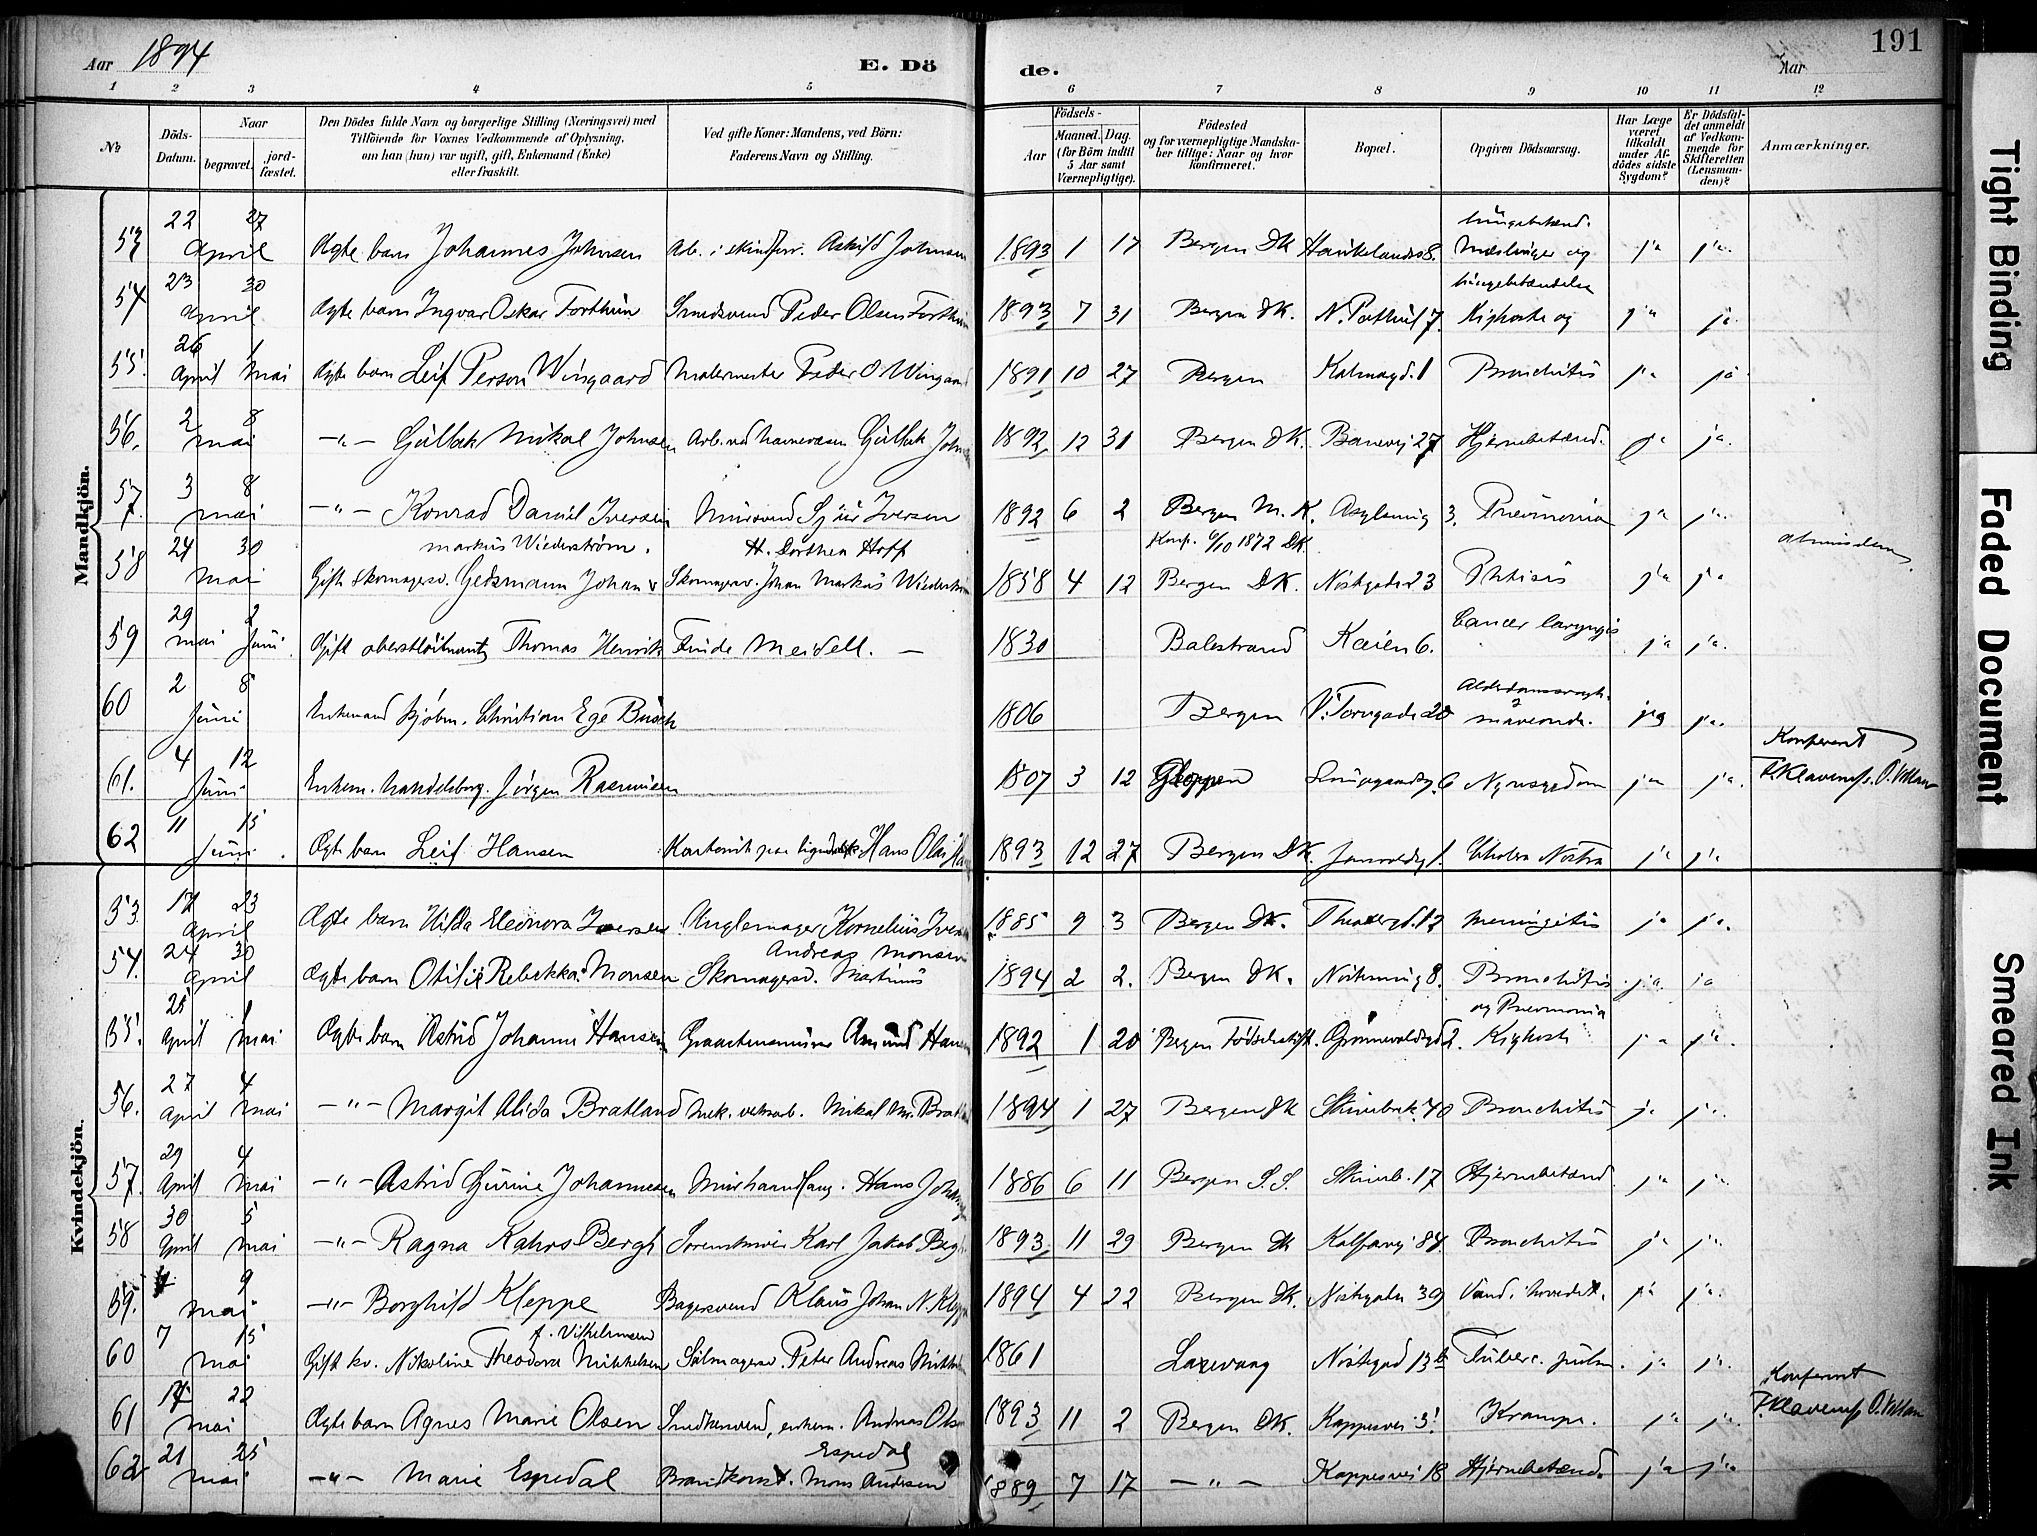 Aar 1894 E. Dö de. Aar 191
1 2 3 4 5 6 7 8 9 10 11 12
No Döds-Datum. Naar begravet. jord-fæstet. Den Dödes fulde Navn og borgerlige Stilling (Næringsvei) med Tilföiende for Voxnes Vedkommende af Oplysning, om han (hun) var ugift, gift, Enkemand (Enke) eller fraskilt. Ved gifte Koner: Mandens, ved Börn: Faderens Navn og Stilling. Födsels- Aar Maaned. Dag. (for Börn indtil 5 Aar samt Værnepligtige). Födested og for værnepligtige Mandska-ber tillige: Naar og hvor konfirmeret. Bopæl. Opgiven Dödsaarsag. Har Læge været tilkaldt under Af-dödes sidste Sygdom? Er Dödsfal-det anmeldt af Vedkom-mende for Skifteretten (Lensman-den)? Anmærkninger.
Mandkjön.
53 22 27 April Ægte barn Johannes Johnsen Arb. i skindforr. Askild Johnsen 1893 1 17 Bergen DK Haukelandss 8. Mæslinger og lungebetænd. ja ja.
54 23 30 April Ægte barn Ingvar Oskar Forthun Smedsvend Peder Olsen Forthun 1893 7 31 Bergen DK. 7. Kighoste og lungebetændelse ja ja
55. 26 April 1 Mai Ægte barn Leif Person Wingaard Malermester Peder O Wingaard 1891 10 27 Bergen Kalmargd. 1 Bronchitis ja ja
56. 2 8 mai –"– Gullak Mikal Johnsen Gullak Johnsen 1892 12 31 Bergen DK. Banevej 27 Hjernebetænd. ja ja.
57. 3 8 mai –"– Konrad Daniel Iversen Mursvend Sjur Iversen 1892 6 2 Bergen M. K. Asylsmug 3. Pneumonia ja ja.
58 24 30 mai Gift skomagersv. Gedsmann Johan Markus Wiederström. Skomagersv. Johan Markus Wiederström H. Dorthea Hoff 1858 4 12 Konf. 6/10 1872 DK. Bergen DK. Nöstegade 23 Phtisis ja ja
59 29 mai 2 Juni. Gift oberstlöitnant Thomas Henrik Frude Meidell. – 1830 Balestrand Kaien 6. Cancer laryngis ja ja.
60 2 8 Juni Enkemand kjøbm. Christian Ege Busch 1806 Bergen V. Torvgade 20 ja ja.
61. 4 12 Juni Enkem. handelsborg. Jörgen Rasmusen 1807 3 12 Gloppen 6 Nyresygdom ja ja. Konfereret
62 11 15 Juni. Ægte barn Leif Hansen Hans Olai 1893 12 27 Bergen DK. 1. Cholera Nostra ja ja
Kvindekjön.
53. 17 23 April Ægte barn Hilda Eleonora Iversen Uhglemager Kornelius Iversen 1885 9 3 Bergen DK. Theatergd. 12 Meningitis ja ja.
54. 24 30 April Ægte barn Otilie Rebekka Monsen Skomagersv. Martinus Andreas Monsen 1894 2 2. Bergen DK. Nöstesmug 8. Bronchitis ja ja
55. 25 April 1 mai Ægte barn Astrid Johanne Hansen Graastensmurer Amund Hansen 1892 1 20 Bergen Födselsstift. Grönnevoldsgd 2. Kighoste og Pneumonia ja ja.
56. 27 April 4 mai –"– Margit Alida Bratland Mek. verksarb. Mikal M. Bratland 1894 1 27 Bergen DK Skivebak. 40 Bronchitis ja ja
57. 29 April 4 mai –"– Astrid Gurine Johannesen Murhaandlang. Hans Johannesen 1886 6 11 Bergen S.S. Skiveb. 17 Hjernebetænd. ja ja.
58 30 April 5 mai –"– Ragna Kahrs Bergh Karl Jakob Bergh 1893 11 29 Bergen DK Kalfarvej 84 Bronchitis ja ja.
59. 4 9 mai –"– Borghild Kleppe Bagersvend Klaus Johan N. Kleppe 1894 4 22 Bergen DK. Nöstegaten 39 Vand i hovedet. ja ja.
60 7 15 mai Gift kv. Nikoline Theodora Mikkelsen f. Vilhelmsen Salmagersv. Peter Andreas Mikkelsen 1861 Laxevaag Nöstegad 13b Tuberc. pulm. ja ja.
61 14 22 mai Ægte barn Agnes Marie Olsen Smedsvend, enkem. Andreas Olsen 1893 11 2 Bergen DK. Kappesvei 3. Krampe. ja ja. Konfereret
62 21 25 mai –"– Marie Espedal Brandkonst. Mons Andersen Espedal 1889 7 17 –"– Kappesvej 18 Hjernebetænd. ja ja
Tight Binding
Faded Document
Smeared Ink